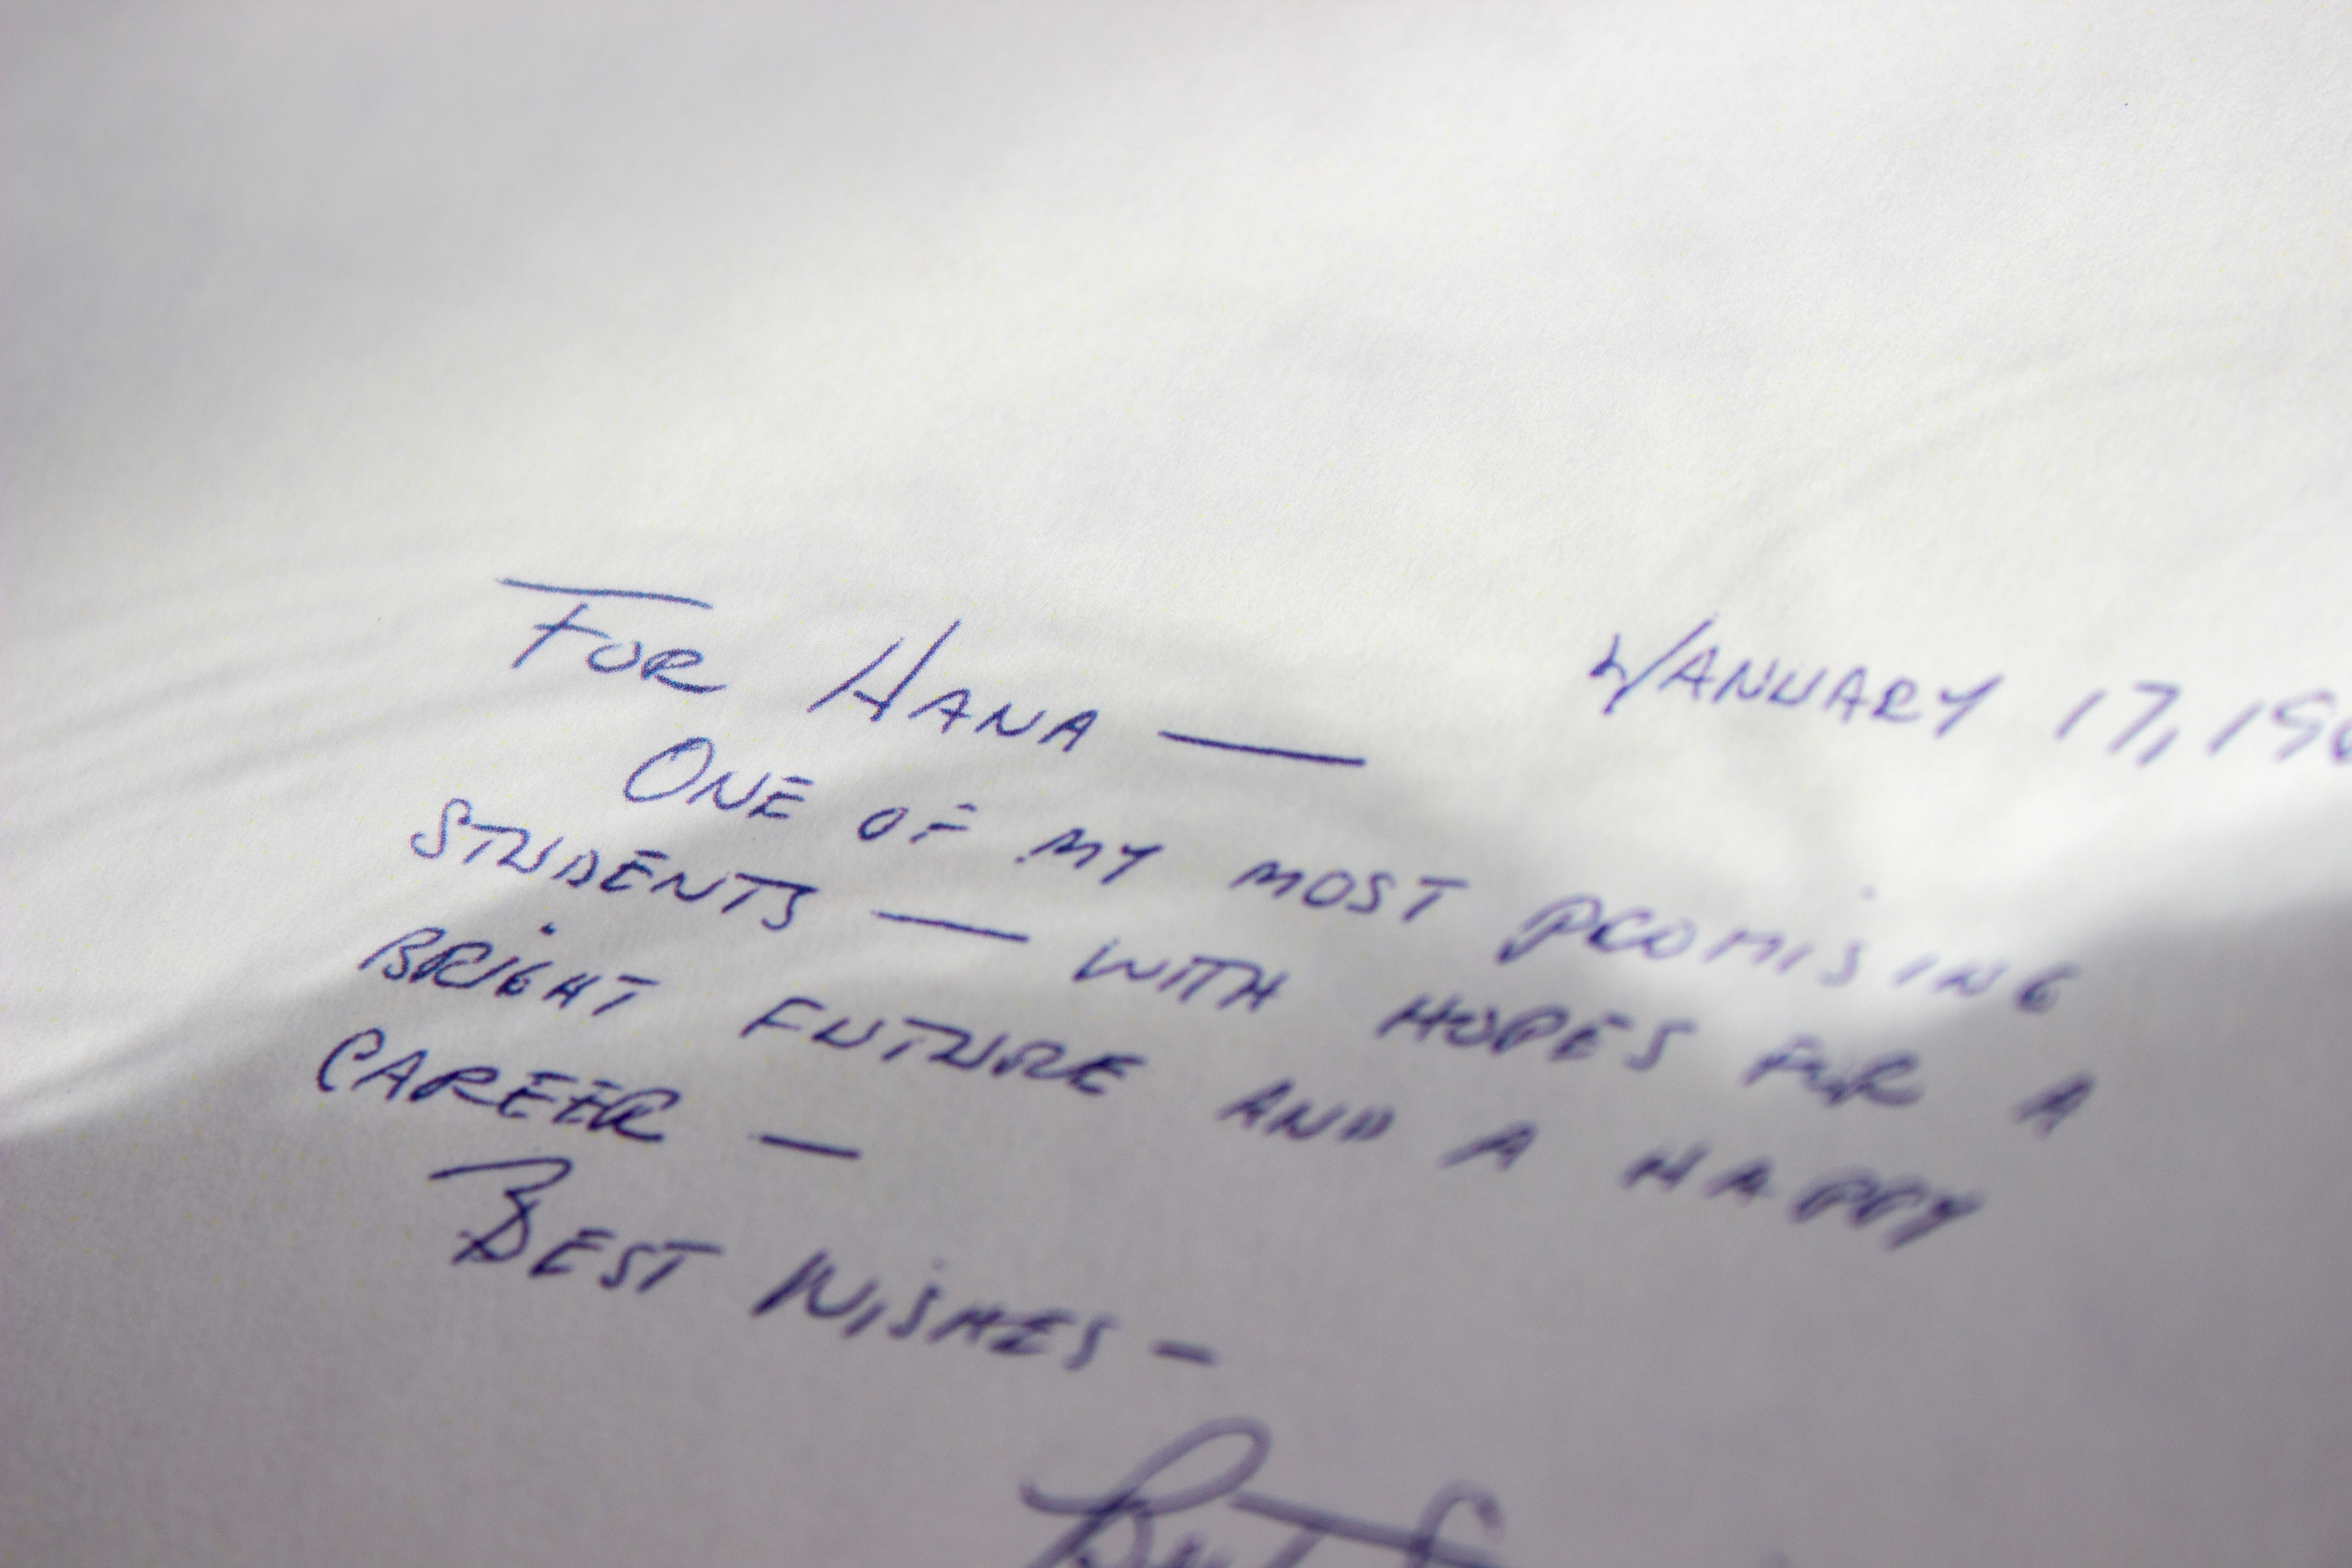 FOR HANA — JANUARY 17, 19
ONE OF MY MOST PROMISING
STUDENTS — WITH HOPES FOR A
BRIGHT FUTURE AND A HAPPY
CAREER —
BEST WISHES —